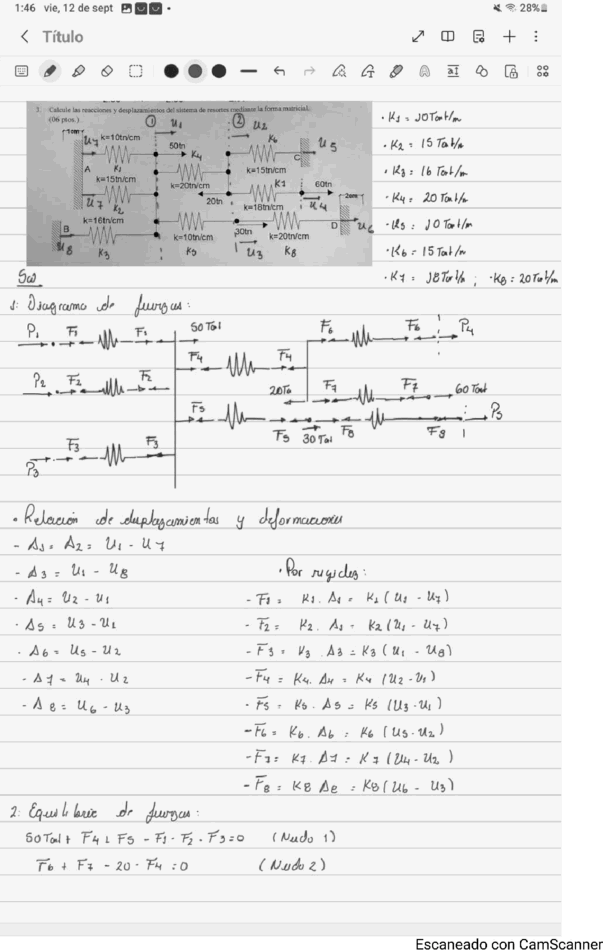 1:46 vie, 12 de sept
28%
Título
3. Calcule las reacciones y desplazamientos del sistema de resortes mediante la forma matricial.
(06 ptos.)
① U1 ② U2
1cm U7 k=10tn/cm 50tn K4 K6 U5
A K1 k=15tn/cm C
k=15tn/cm k=20tn/cm K7 60tn
U7 K2 20tn k=18tn/cm U4 2cm
k=16tn/cm 30tn D U6
B U8 K3 k=10tn/cm K5 U3 k=20tn/cm K8
· K1 = 10Ton/m
· K2 = 15 Ton/m
· K3 = 16 Ton/m
· K4 = 20 Ton/m
· U5 = 10 Ton/m
· K6 = 15 Ton/m
· K7 = 18Ton/m ; · K8 = 20Ton/m
Sol
1: Diagrama de fuerzas:
P1 F1 F1 50 Tol F6 F6 P4
F4 F4
P2 F2 F2 20To F7 F7 60 Tont
F5 F5 30 Tol F8 F8 P5
P3 F3 F3
· Relación de desplazamientos y deformaciones
- Δ1 = Δ2 = U1 - U7
- Δ3 = U1 - U8
- Δ4 = U2 - U1
- Δ5 = U3 - U1
· Δ6 = U5 - U2
- Δ7 = U4 - U2
- Δ8 = U6 - U3
· Por rigidez:
- F1 = K1 . Δ1 = K1 (U1 - U7)
- F2 = K2 . Δ2 = K2 (U1 - U7)
- F3 = K3 . Δ3 = K3 (U1 - U8)
- F4 = K4 . Δ4 = K4 (U2 - U1)
- F5 = K5 . Δ5 = K5 (U3 - U1)
- F6 = K6 . Δ6 = K6 (U5 - U2)
- F7 = K7 . Δ7 = K7 (U4 - U2)
- F8 = K8 Δ8 = K8 (U6 - U3)
2: Equilibrio de fuerzas:
50Tol + F4 + F5 - F1 - F2 - F3 = 0 (Nudo 1)
F6 + F7 - 20 - F4 = 0 (Nudo 2)
Escaneado con CamScanner